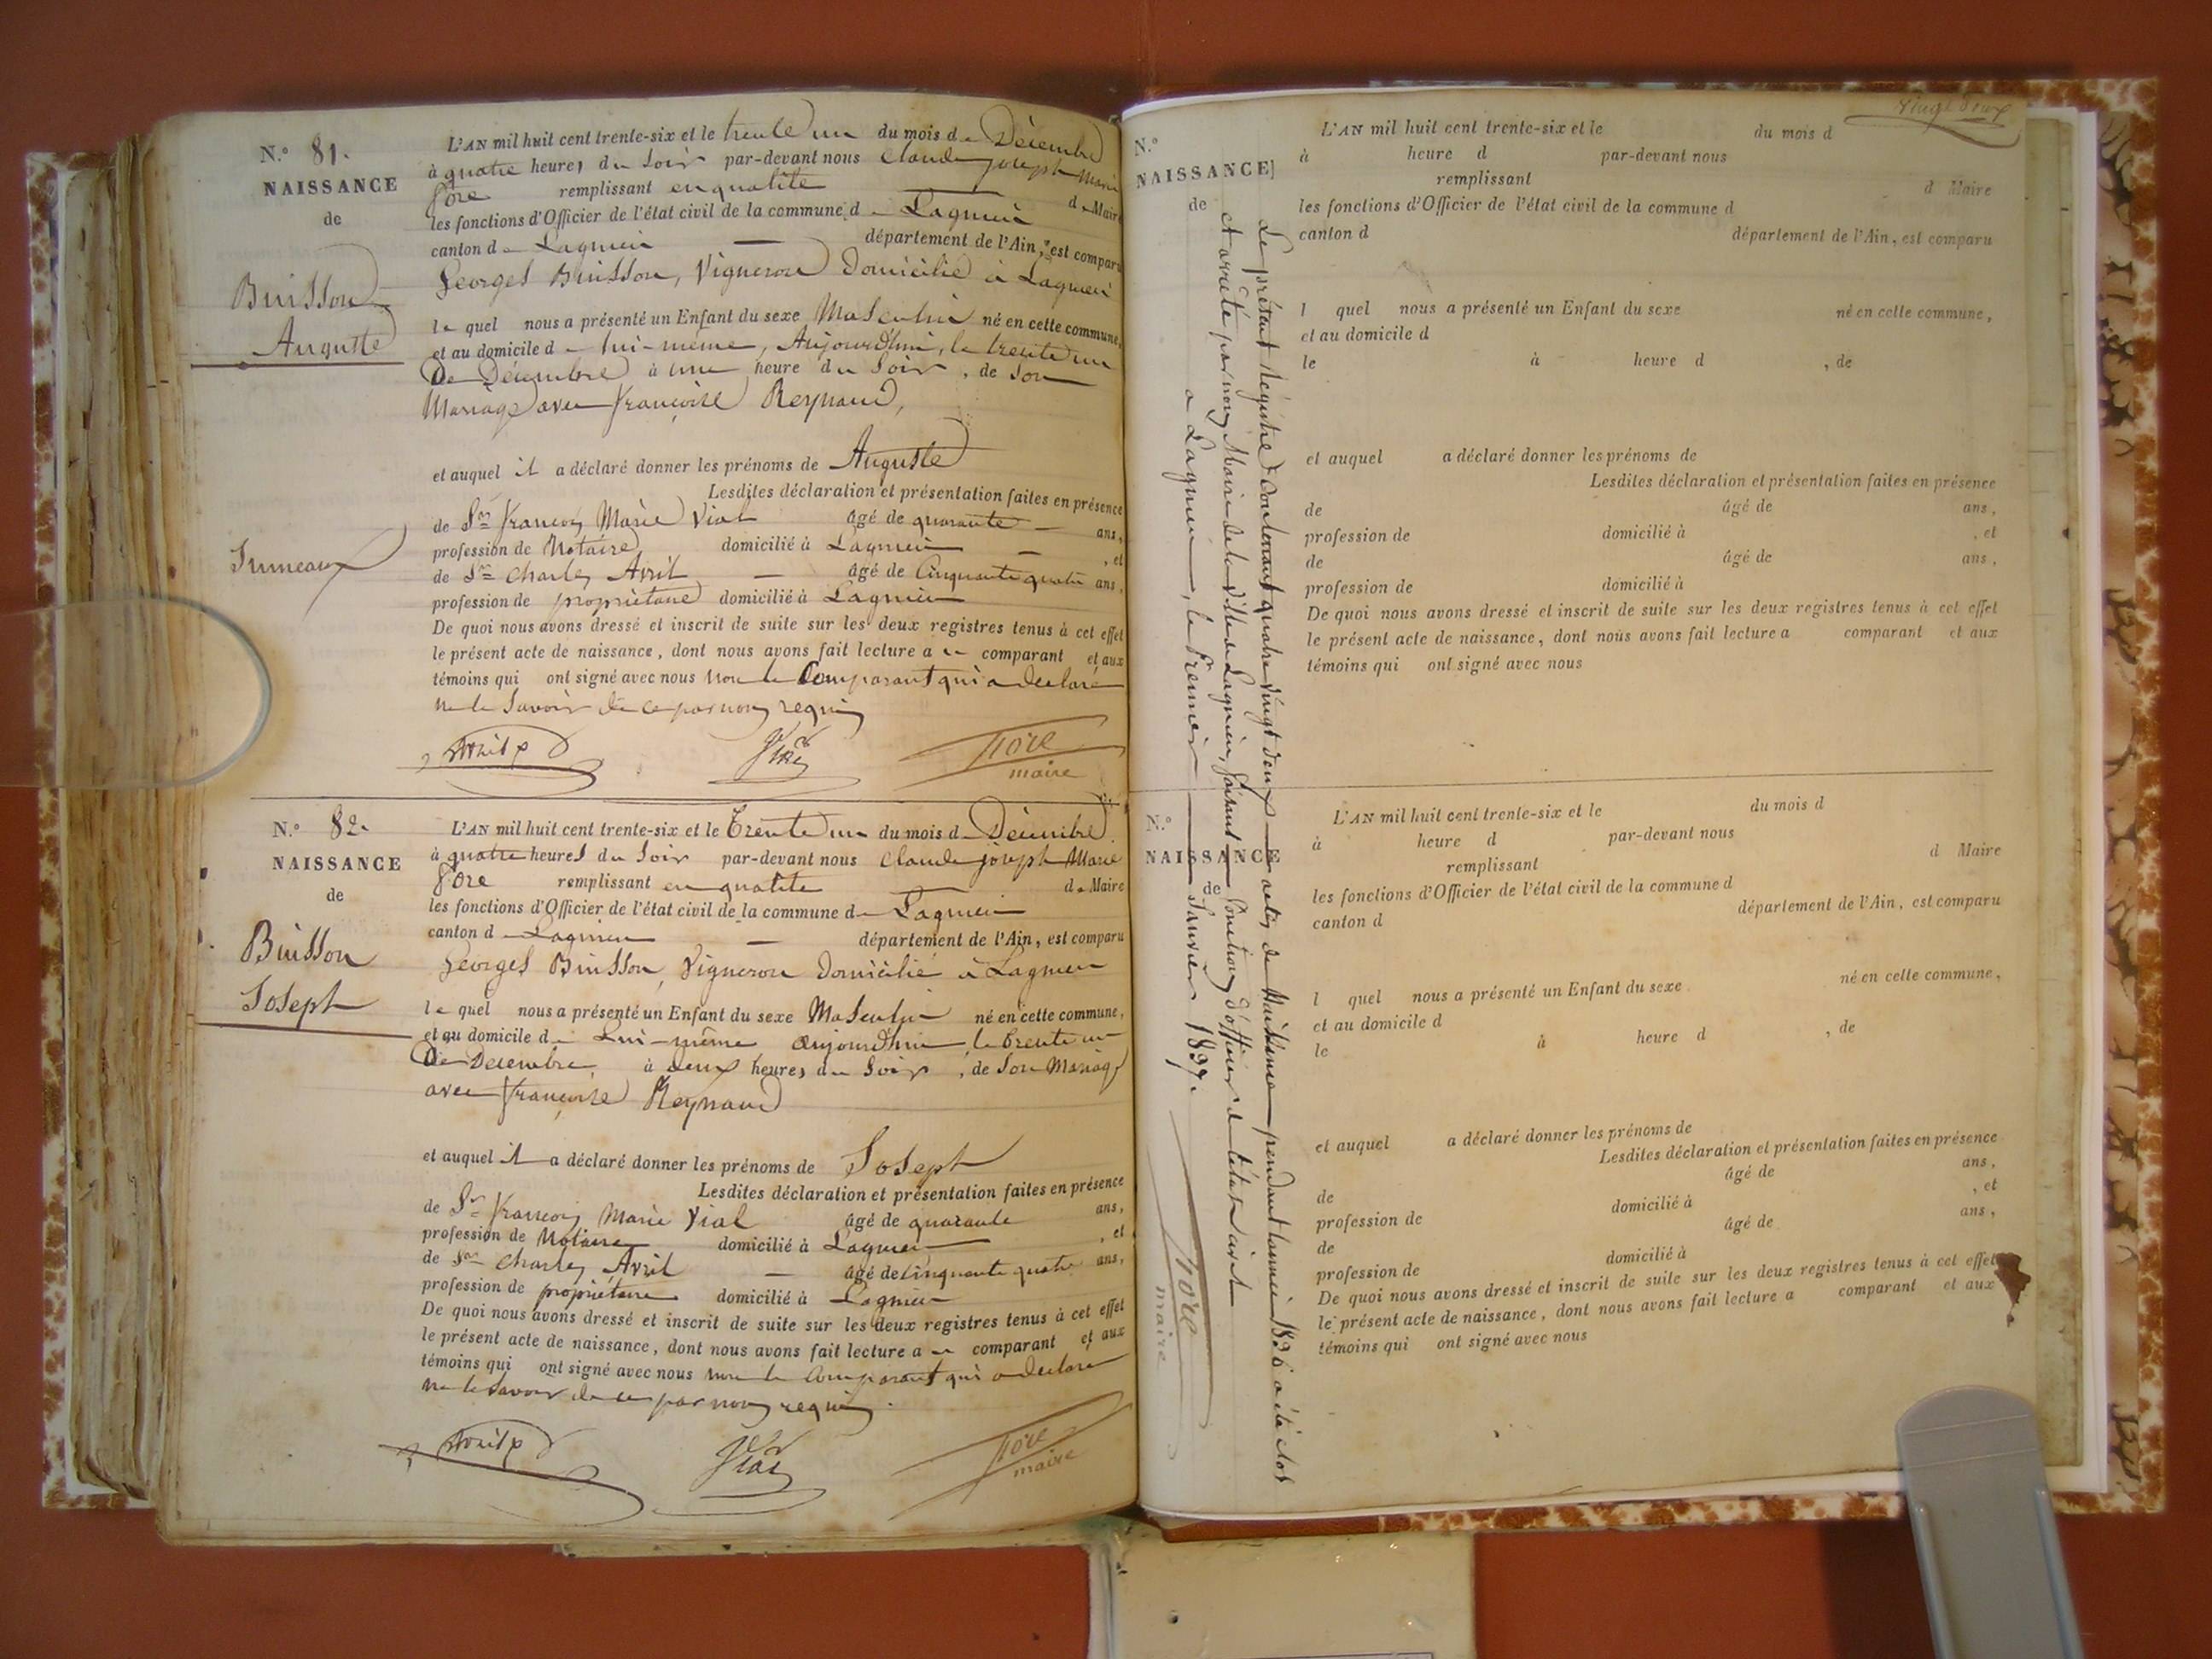 N.° 81.
NAISSANCE
de
Buisson
Auguste
Jumeaux
L'AN mil huit cent trente-six et le trente un du mois de Décembre
à quatre heures du Soir par-devant nous Claude joseph Marie
Fore remplissant en qualité de Maire
les fonctions d'Officier de l'état civil de la commune de Lagnieu
canton de Lagnieu — département de l'Ain, est comparu
Georges Buisson, Vigneron Domicilié à Lagnieu
le quel nous a présenté un Enfant du sexe Masculin né en cette commune,
et au domicile de lui-même, Aujourd'hui, le trente un
De Décembre à une heure du Soir, de Son
Mariage avec françoise Reynaud,
et auquel il a déclaré donner les prénoms de Auguste
Lesdites déclaration et présentation faites en présence
de Sr. françois Marie Vial âgé de quarante — ans,
profession de Notaire domicilié à Lagnieu — , et
de Sr. Charles Avril — âgé de Cinquante quatre ans,
profession de propriétaire domicilié à Lagnieu
De quoi nous avons dressé et inscrit de suite sur les deux registres tenus à cet effet
le présent acte de naissance, dont nous avons fait lecture au comparant et aux
témoins qui ont signé avec nous non le Comparant qui a declaré
ne le Savoir de ce par nous requis
Avril Vial Fore
maire
N.° 82.
NAISSANCE
de
Buisson
Joseph
L'AN mil huit cent trente-six et le trente un du mois de Décembre
à quatre heures du Soir par-devant nous Claude joseph Marie
Fore remplissant en qualité de Maire
les fonctions d'Officier de l'état civil de la commune de Lagnieu
canton de Lagnieu — département de l'Ain, est comparu
Georges Buisson, Vigneron Domicilié à Lagnieu
le quel nous a présenté un Enfant du sexe Masculin né en cette commune,
et au domicile de Lui-même aujourd'hui le trente un
De Decembre, à deux heures du Soir, de Son Mariage
avec françoise Reynaud
et auquel il a déclaré donner les prénoms de Joseph
Lesdites déclaration et présentation faites en présence
de Sr. françois Marie Vial âgé de quarante ans,
profession de Notaire domicilié à Lagnieu , et
de Sr. Charles Avril — âgé de Cinquante quatre ans,
profession de propriétaire domicilié à Lagnieu
De quoi nous avons dressé et inscrit de suite sur les deux registres tenus à cet effet
le présent acte de naissance, dont nous avons fait lecture au comparant et aux
témoins qui ont signé avec nous non le Comparant qui a declaré
ne le savoir de ce par nous requis.
Avril Vial Fore
maire
Vingt deux
N.°
NAISSANCE
de
L'AN mil huit cent trente-six et le du mois d
à heure d par-devant nous
remplissant d Maire
les fonctions d'Officier de l'état civil de la commune d
canton d département de l'Ain, est comparu
l quel nous a présenté un Enfant du sexe né en cette commune,
et au domicile d
le à heure d , de
et auquel a déclaré donner les prénoms de
Lesdites déclaration et présentation faites en présence
de âgé de ans,
profession de domicilié à , et
de âgé de ans,
profession de domicilié à
De quoi nous avons dressé et inscrit de suite sur les deux registres tenus à cet effet
le présent acte de naissance, dont nous avons fait lecture a comparant et aux
témoins qui ont signé avec nous
N.°
NAISSANCE
de
L'AN mil huit cent trente-six et le du mois d
à heure d par-devant nous
remplissant d Maire
les fonctions d'Officier de l'état civil de la commune d
canton d département de l'Ain, est comparu
l quel nous a présenté un Enfant du sexe né en cette commune,
et au domicile d
le à heure d , de
et auquel a déclaré donner les prénoms de
Lesdites déclaration et présentation faites en présence
de âgé de ans,
profession de domicilié à , et
de âgé de ans,
profession de domicilié à
De quoi nous avons dressé et inscrit de suite sur les deux registres tenus à cet effet
le présent acte de naissance, dont nous avons fait lecture a comparant et aux
témoins qui ont signé avec nous
Le présent Registre Contenant quatre Vingt deux actes de Naissance pendant l'année 1836 a été clos
et arrêté par nous Maire de la Ville de Lagnieu, faisant fonctions d'officier de l'état civil
a Lagnieu, le Premier Janvier 1837.
Fore
maire